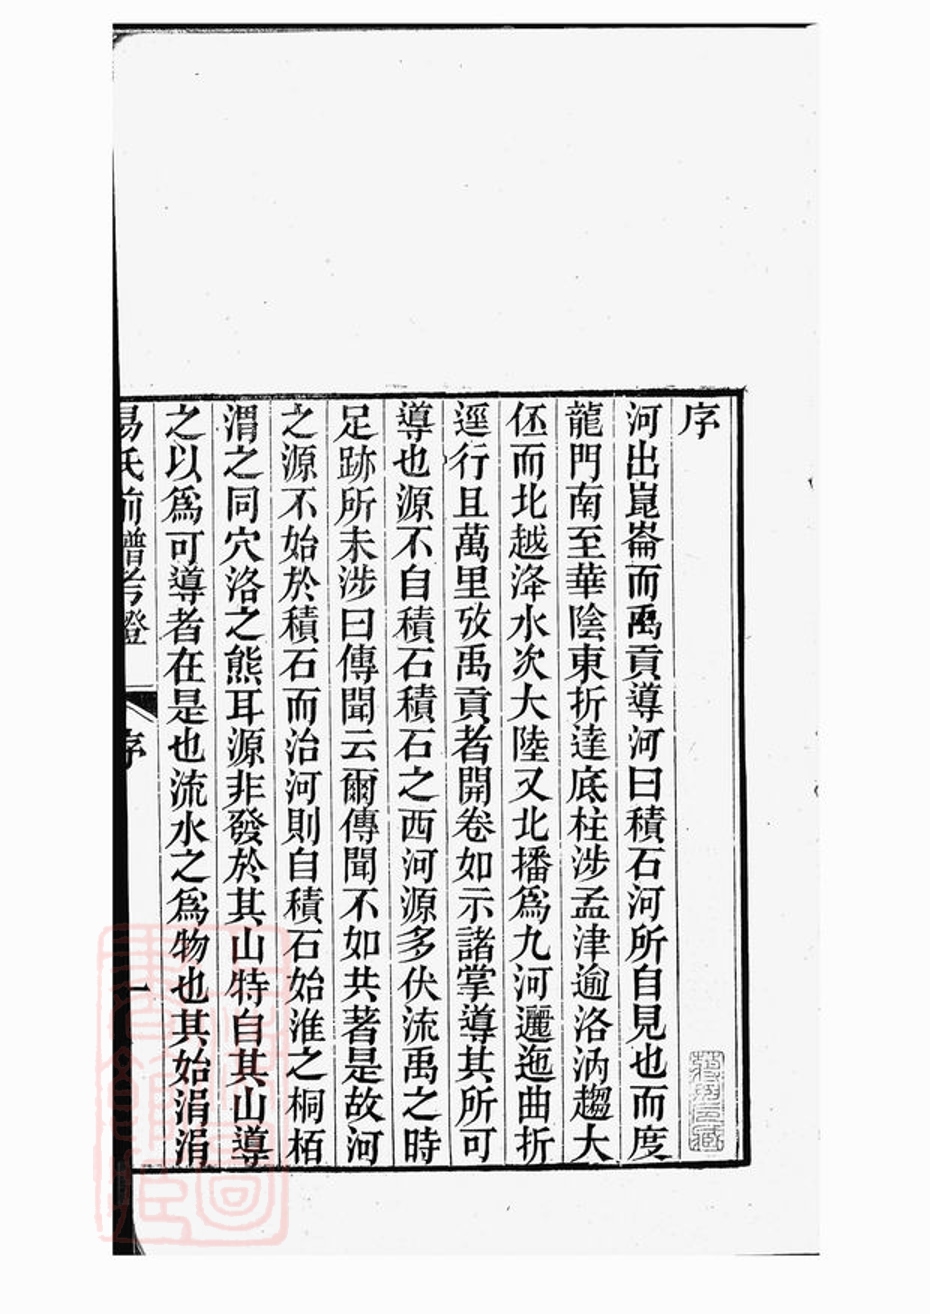 序
河出崑崙而禹貢導河曰積石河所自見也而度
龍門南至華陰東折達底柱涉孟津逾洛汭趨大
伾而北越洚水次大陸又北播爲九河邐迤曲折
逕行且萬里攷禹貢者開卷如示諸掌導其所可
導也源不自積石積石之西河源多伏流禹之時
足跡所未涉曰傳聞云爾傳聞不如共著是故河
之源不始於積石而治河則自積石始淮之桐栢
渭之同穴洛之熊耳源非發於其山特自其山導
之以爲可導者在是也流水之爲物也其始涓涓
易氏前譜考證
序
一